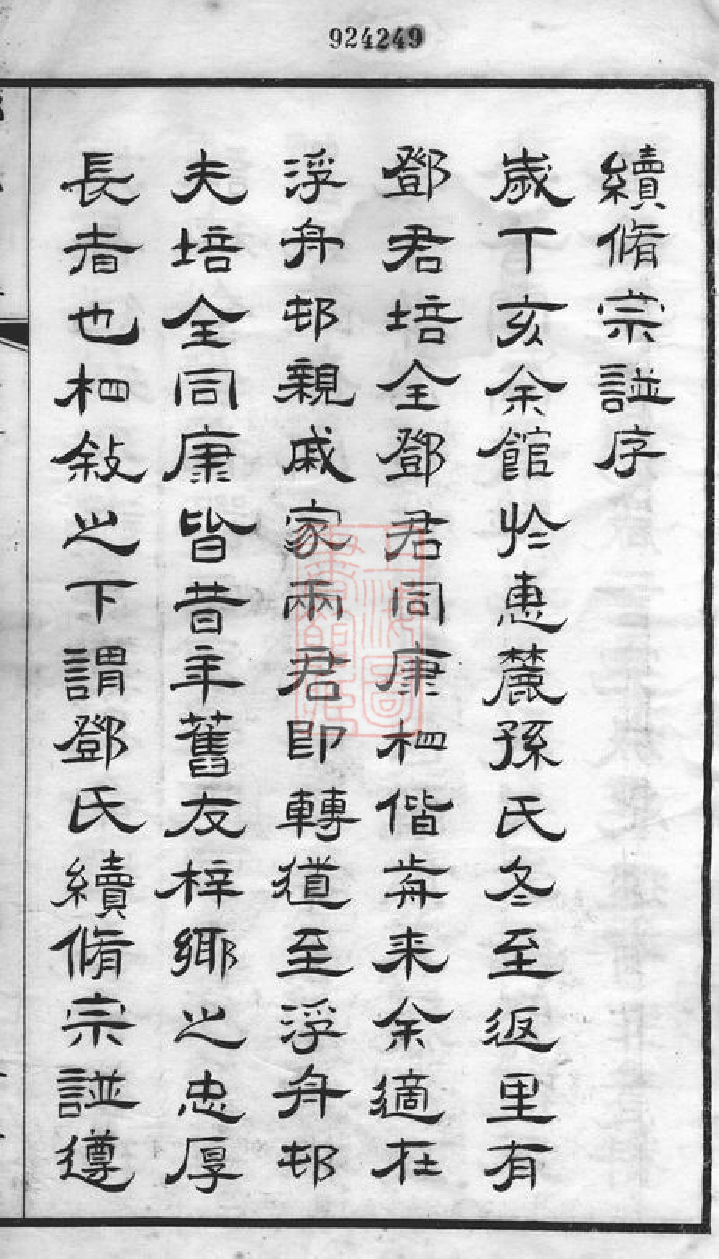 924249
續脩宗譜序
歲丁亥余館於惠麓孫氏冬至返里有
鄧君培全鄧君同康相偕歬来余適在
浮舟邨親戚家兩君即轉道至浮舟邨
夫培全同康皆昔年舊友梓鄉之忠厚
長者也相敍之下謂鄧氏續脩宗譜遵
上海圖
書館藏